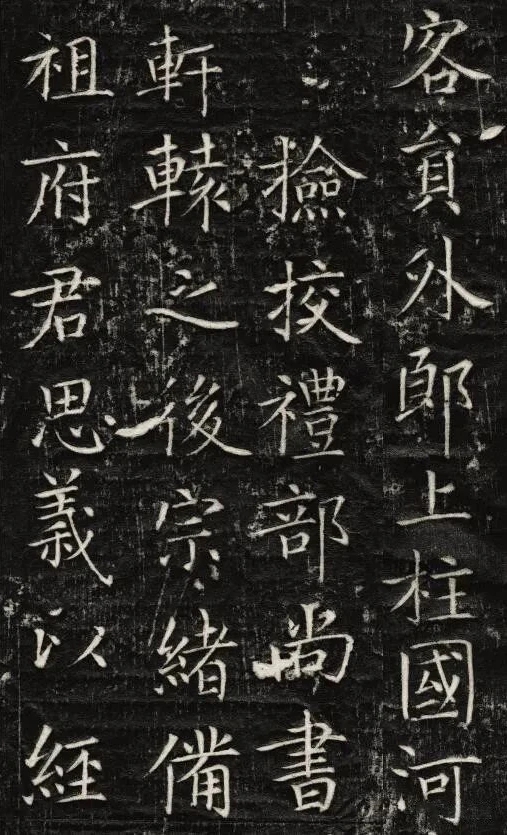 客員外郎上柱國河
撿挍禮部尚書
軒轅之後宗緒備
祖府君思義以經